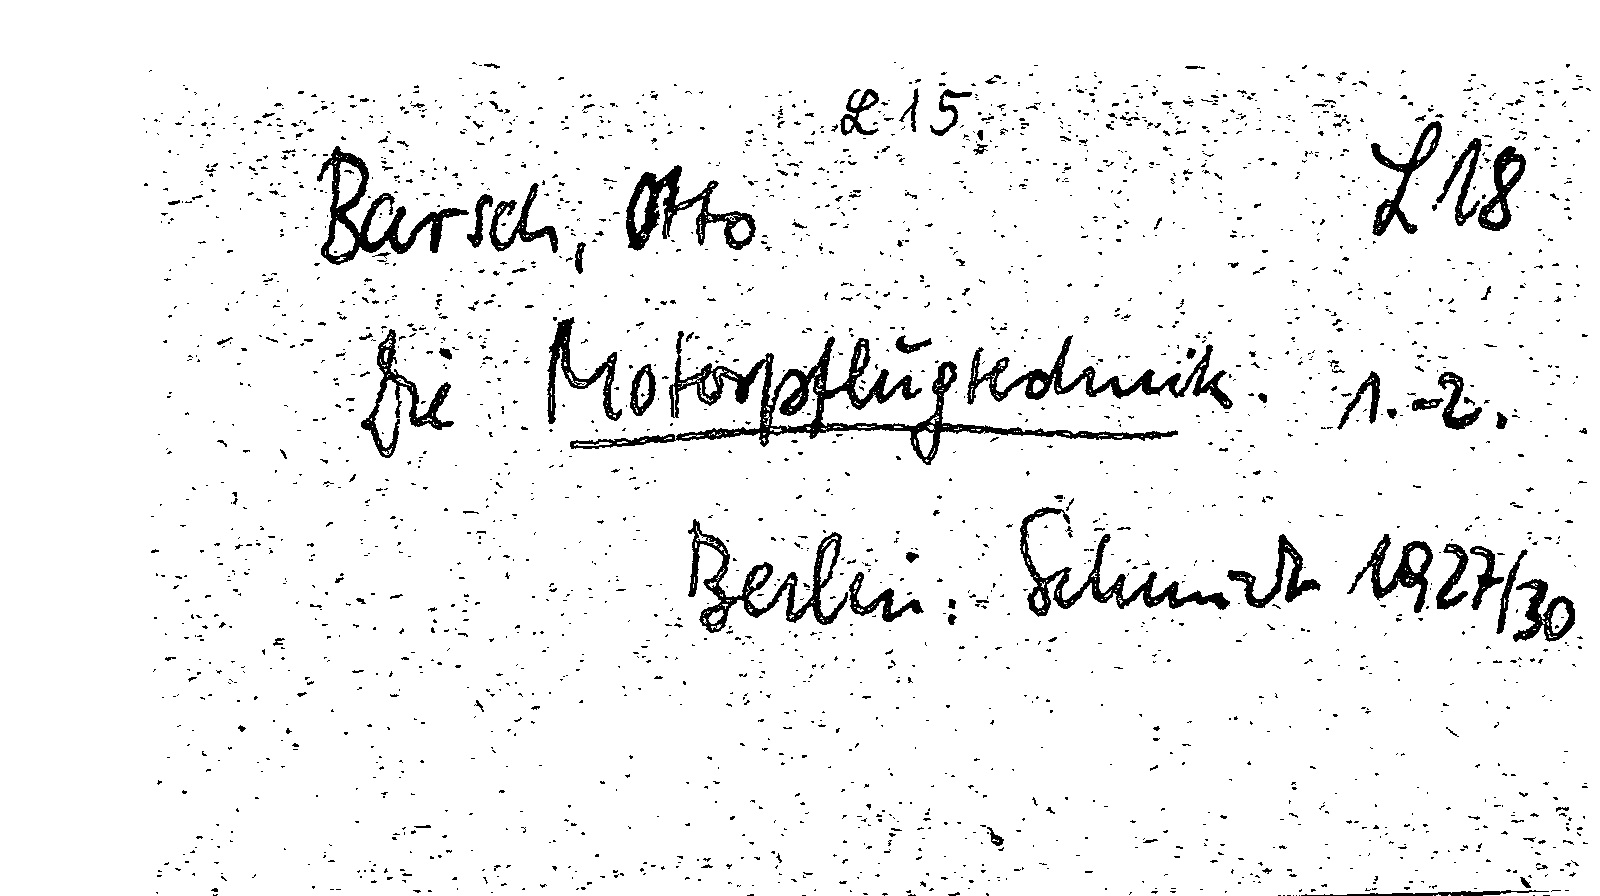 L 15
Barsch, Otto L 18
Die Motorpflugtechnik. 1.-2.
Berlin: Schmidt 1927/30